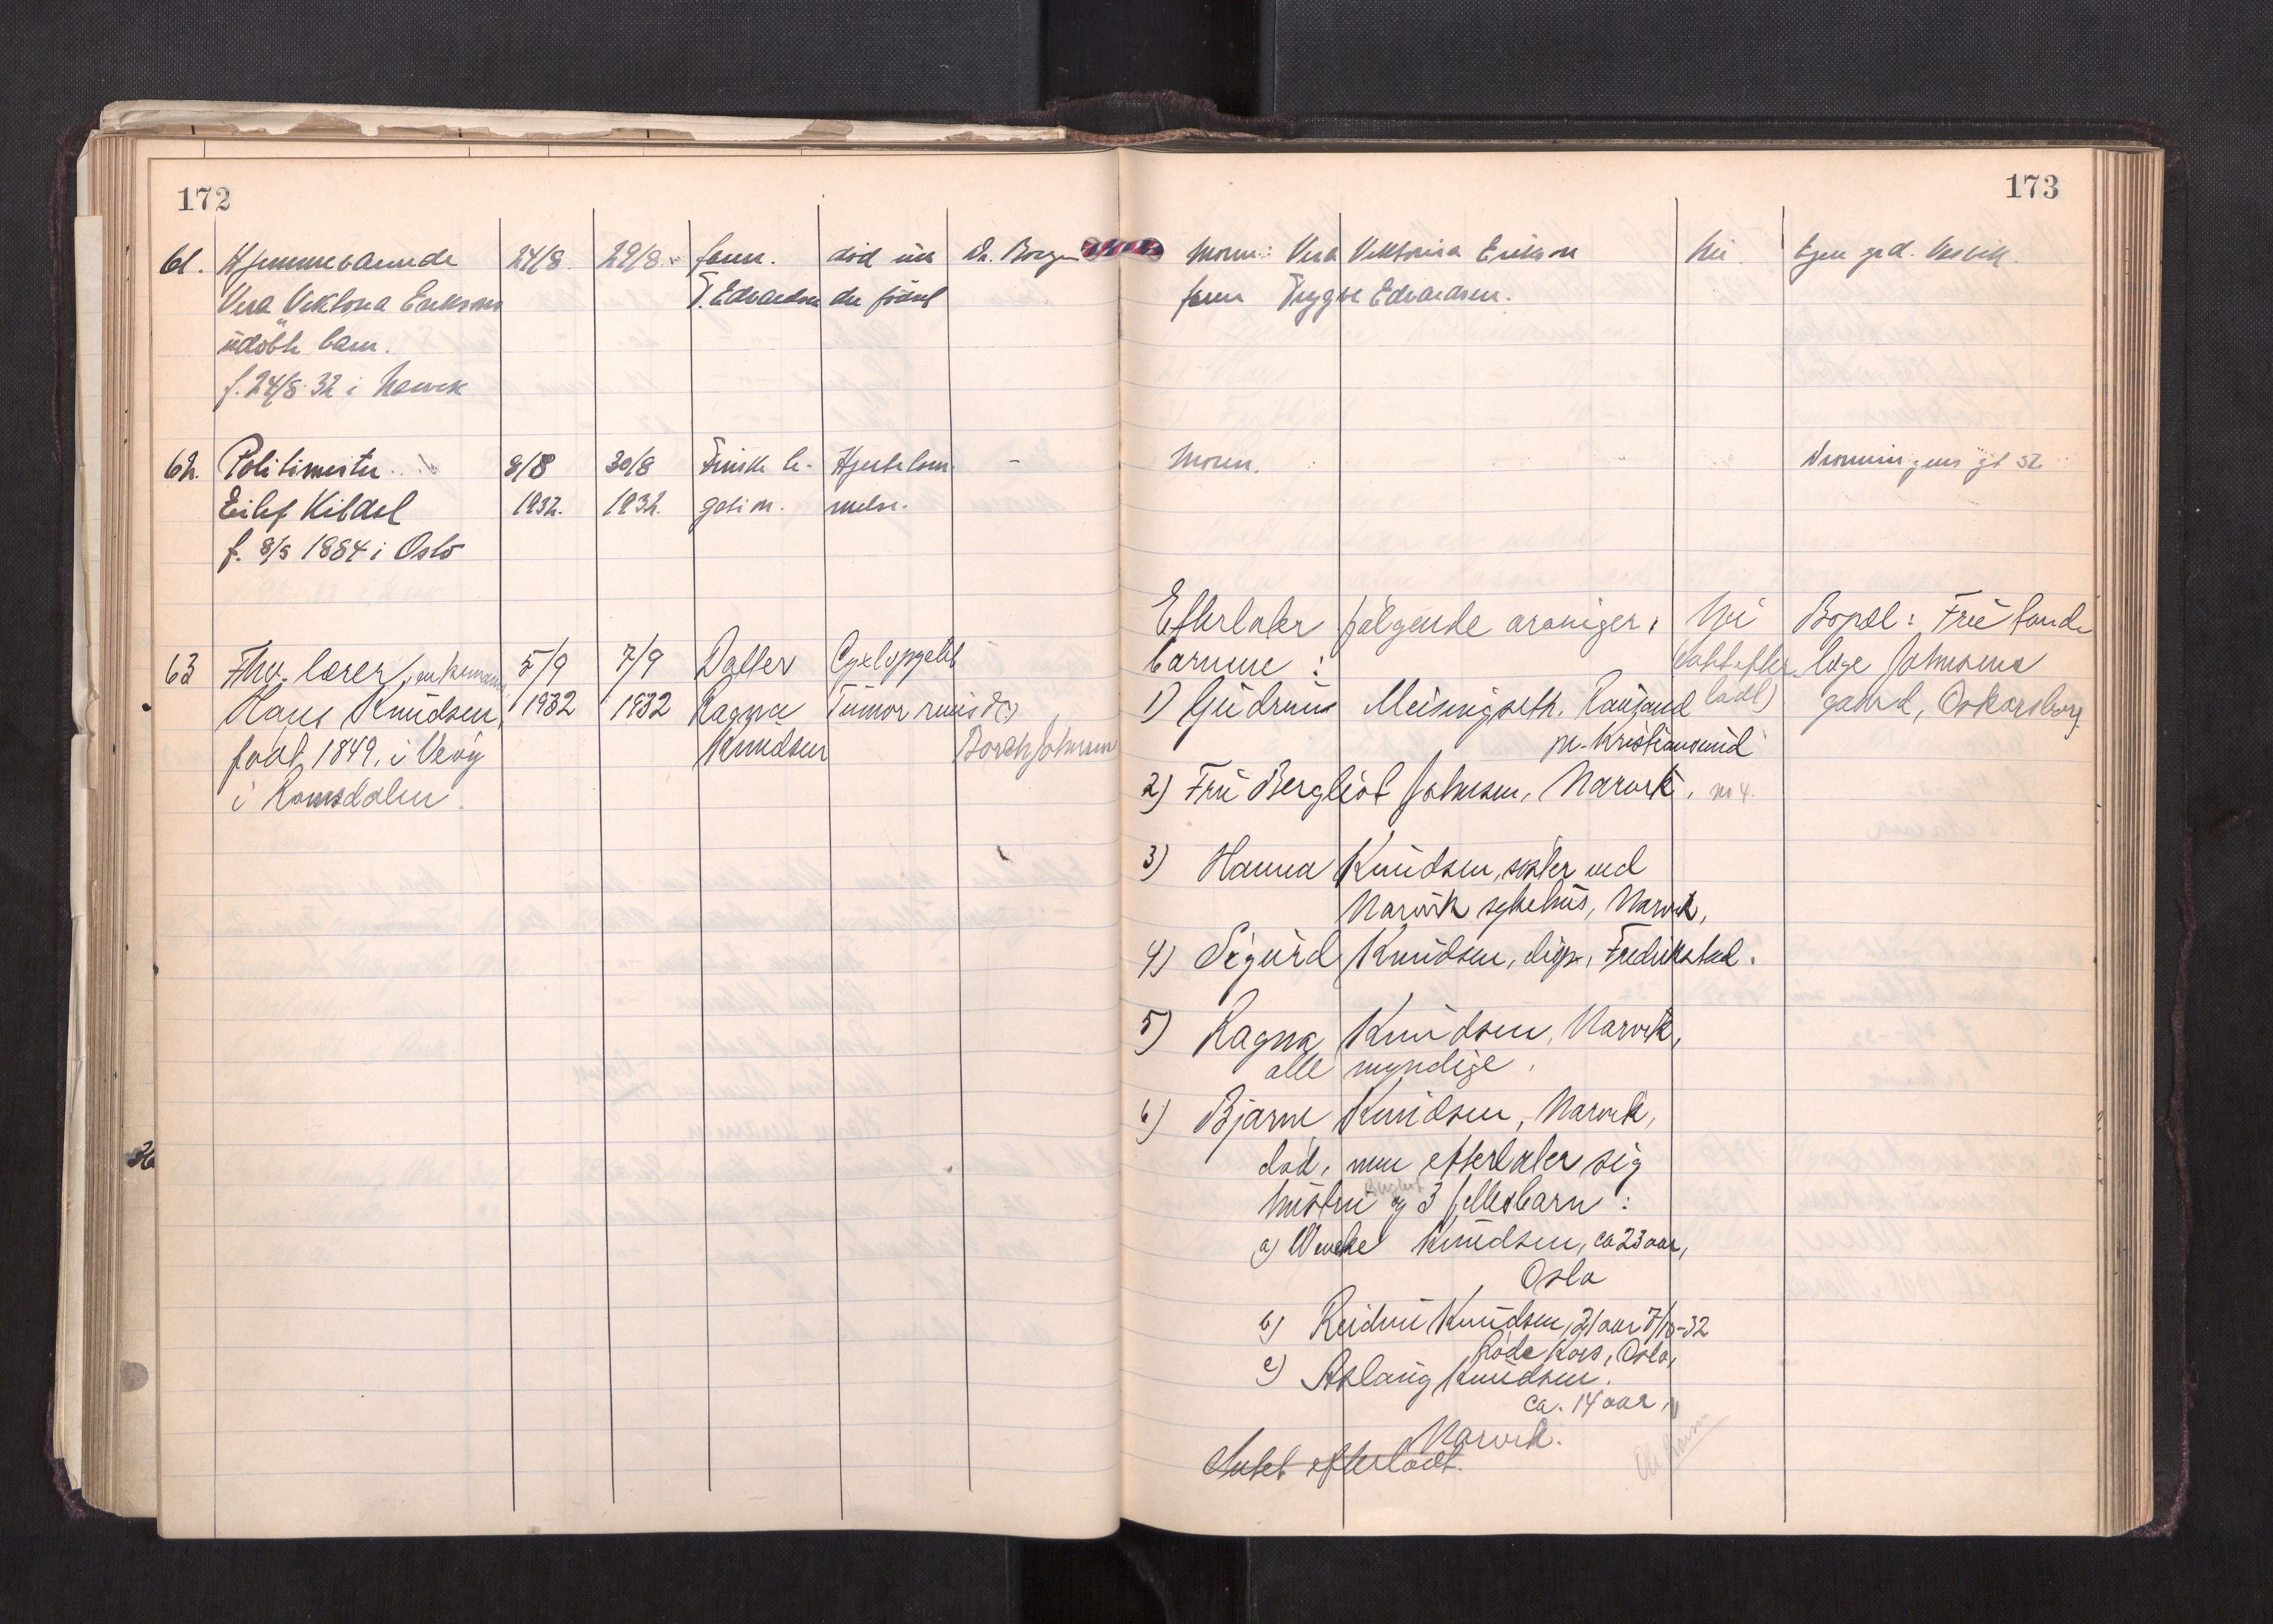 172
61. Hjemmeværende 24/8. 29/8. faren. død før Dr. Borgen
Vera Viktoria Eriksons T. Edvardsen den fødsel
udøbte barn.
f. 24/8 32 i Narvik
62. Politimester 8/8 30/8 Finske le- Hjertelam -
Eilef Kildal 1932. 1932. gation. melse.
f. 8/5 1884 i Oslo
63 Fhv. lærer, enkemann 5/9 7/9 Datter
Hans Knudsen, 1932 1932 Ragna Tumor
født 1849, i Veøy Knudsen Borch Johnsen
i Romsdalen.
173
Moren: Vera Viktoria Erikson Nei. Egen grd.
faren Trygve Edvardsen.
Moren. Dronningens gt 52.
Efterlater følgende arvinger, Nei Bopæl: Fru tand-
barnene: (Intet efter- læge Johnsens
1) Gudrun Meisingseth, Rausand ladt) gaard, Oskarsborg
pr. Kristiansund
2) Fru Bergliot Johnsen, Narvik, no 4.
3) Hanna Knudsen, søster ved
Narvik sykehus, Narvik,
4) Sigurd Knudsen, disp., Fredrikstad.
5) Ragna Knudsen, Narvik,
alle myndige.
6) Bjarne Knudsen, Narvik,
død, men efterlater sig
hustru og 3 fellesbarn:
a) Wenche Knudsen, ca 23 aar,
Oslo
b) Reidun Knudsen, 21 aar 7/10-32
Røde Kors, Oslo,
c) Aslaug Knudsen,
ca. 14 aar,
Narvik.
Intet efterladt.